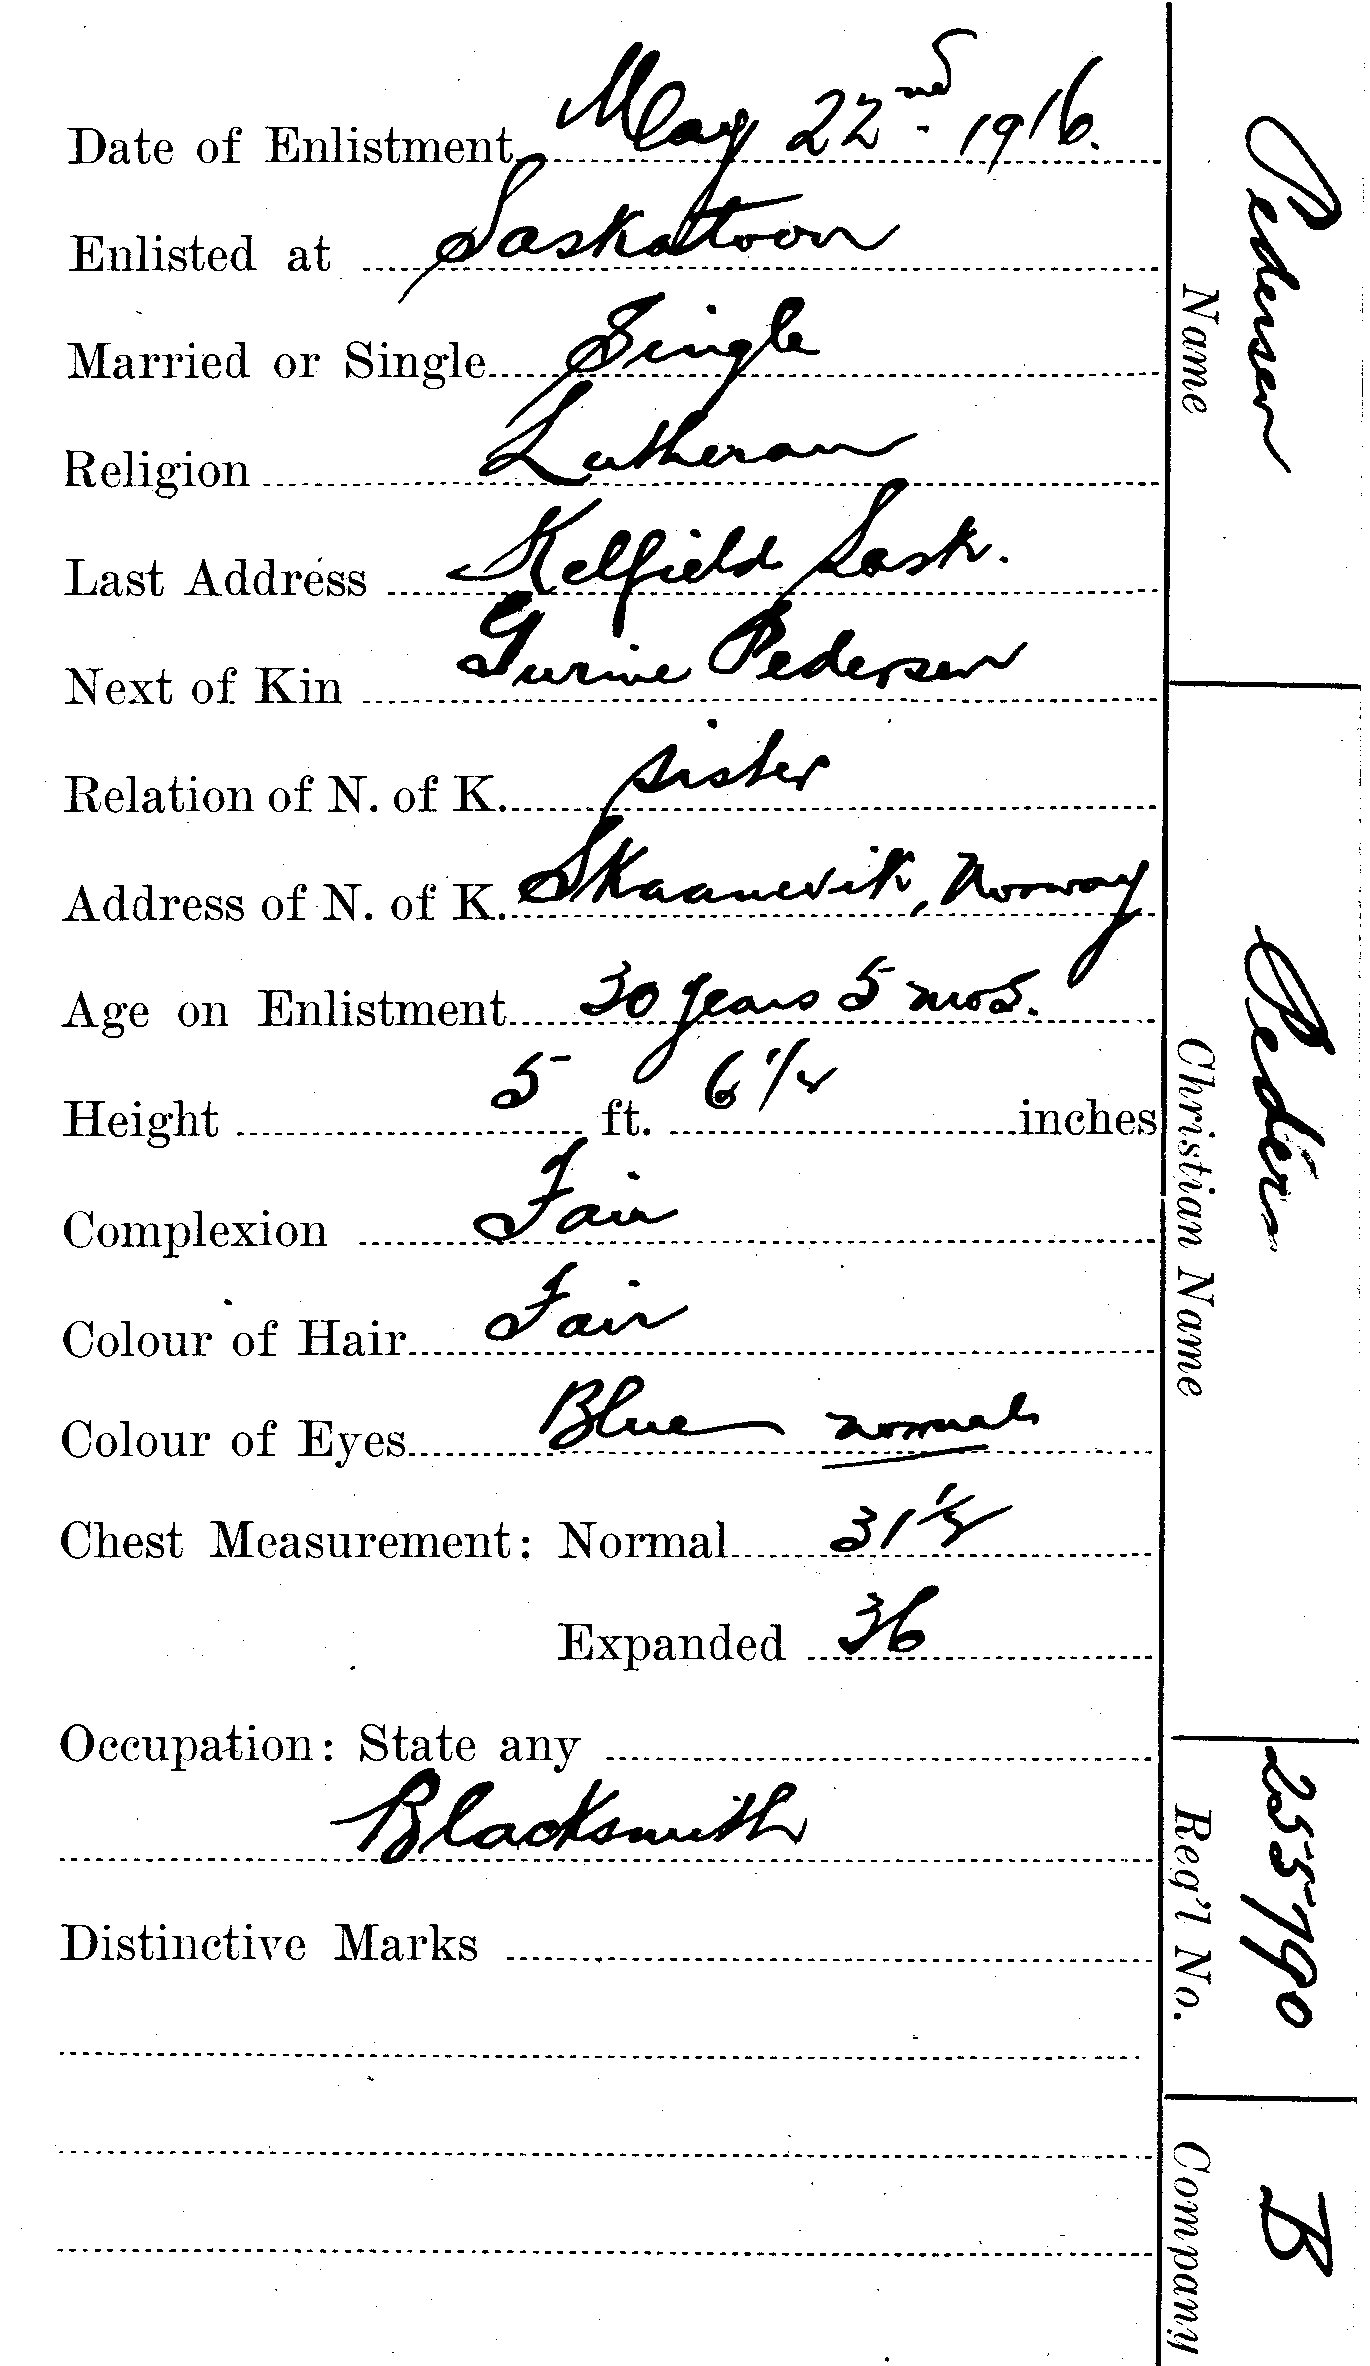 Date of Enlistment May 22nd. 1916.
Enlisted at Saskatoon
Married or Single Single
Religion Lutheran
Last Address Kelfield Sask.
Next of Kin Gurine Pedersen
Relation of N. of K. sister
Address of N. of K. Skaanevik, Norway
Age on Enlistment 30 years 5 mos.
Height 5 ft. 6 1/2 inches
Complexion Fair
Colour of Hair Fair
Colour of Eyes Blue normal
Chest Measurement: Normal 31 1/2
Expanded 36
Occupation: State any
Blacksmith
Distinctive Marks
Name Pedersen
Christian Name
Reg'l No. 255790
Company B